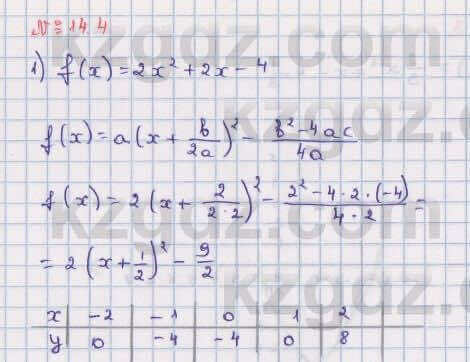 № 14.4
1) f(x) = 2x² + 2x - 4
f(x) = a(x + b/2a)² - b² - 4ac/4a
f(x) = 2(x + 2/2·2)² - 2² - 4·2·(-4)/4·2 =
= 2(x + 1/2)² - 9/2
x | -2 | -1 | 0 | 1 | 2
y | 0 | -4 | -4 | 0 | 8
kzgdz.com